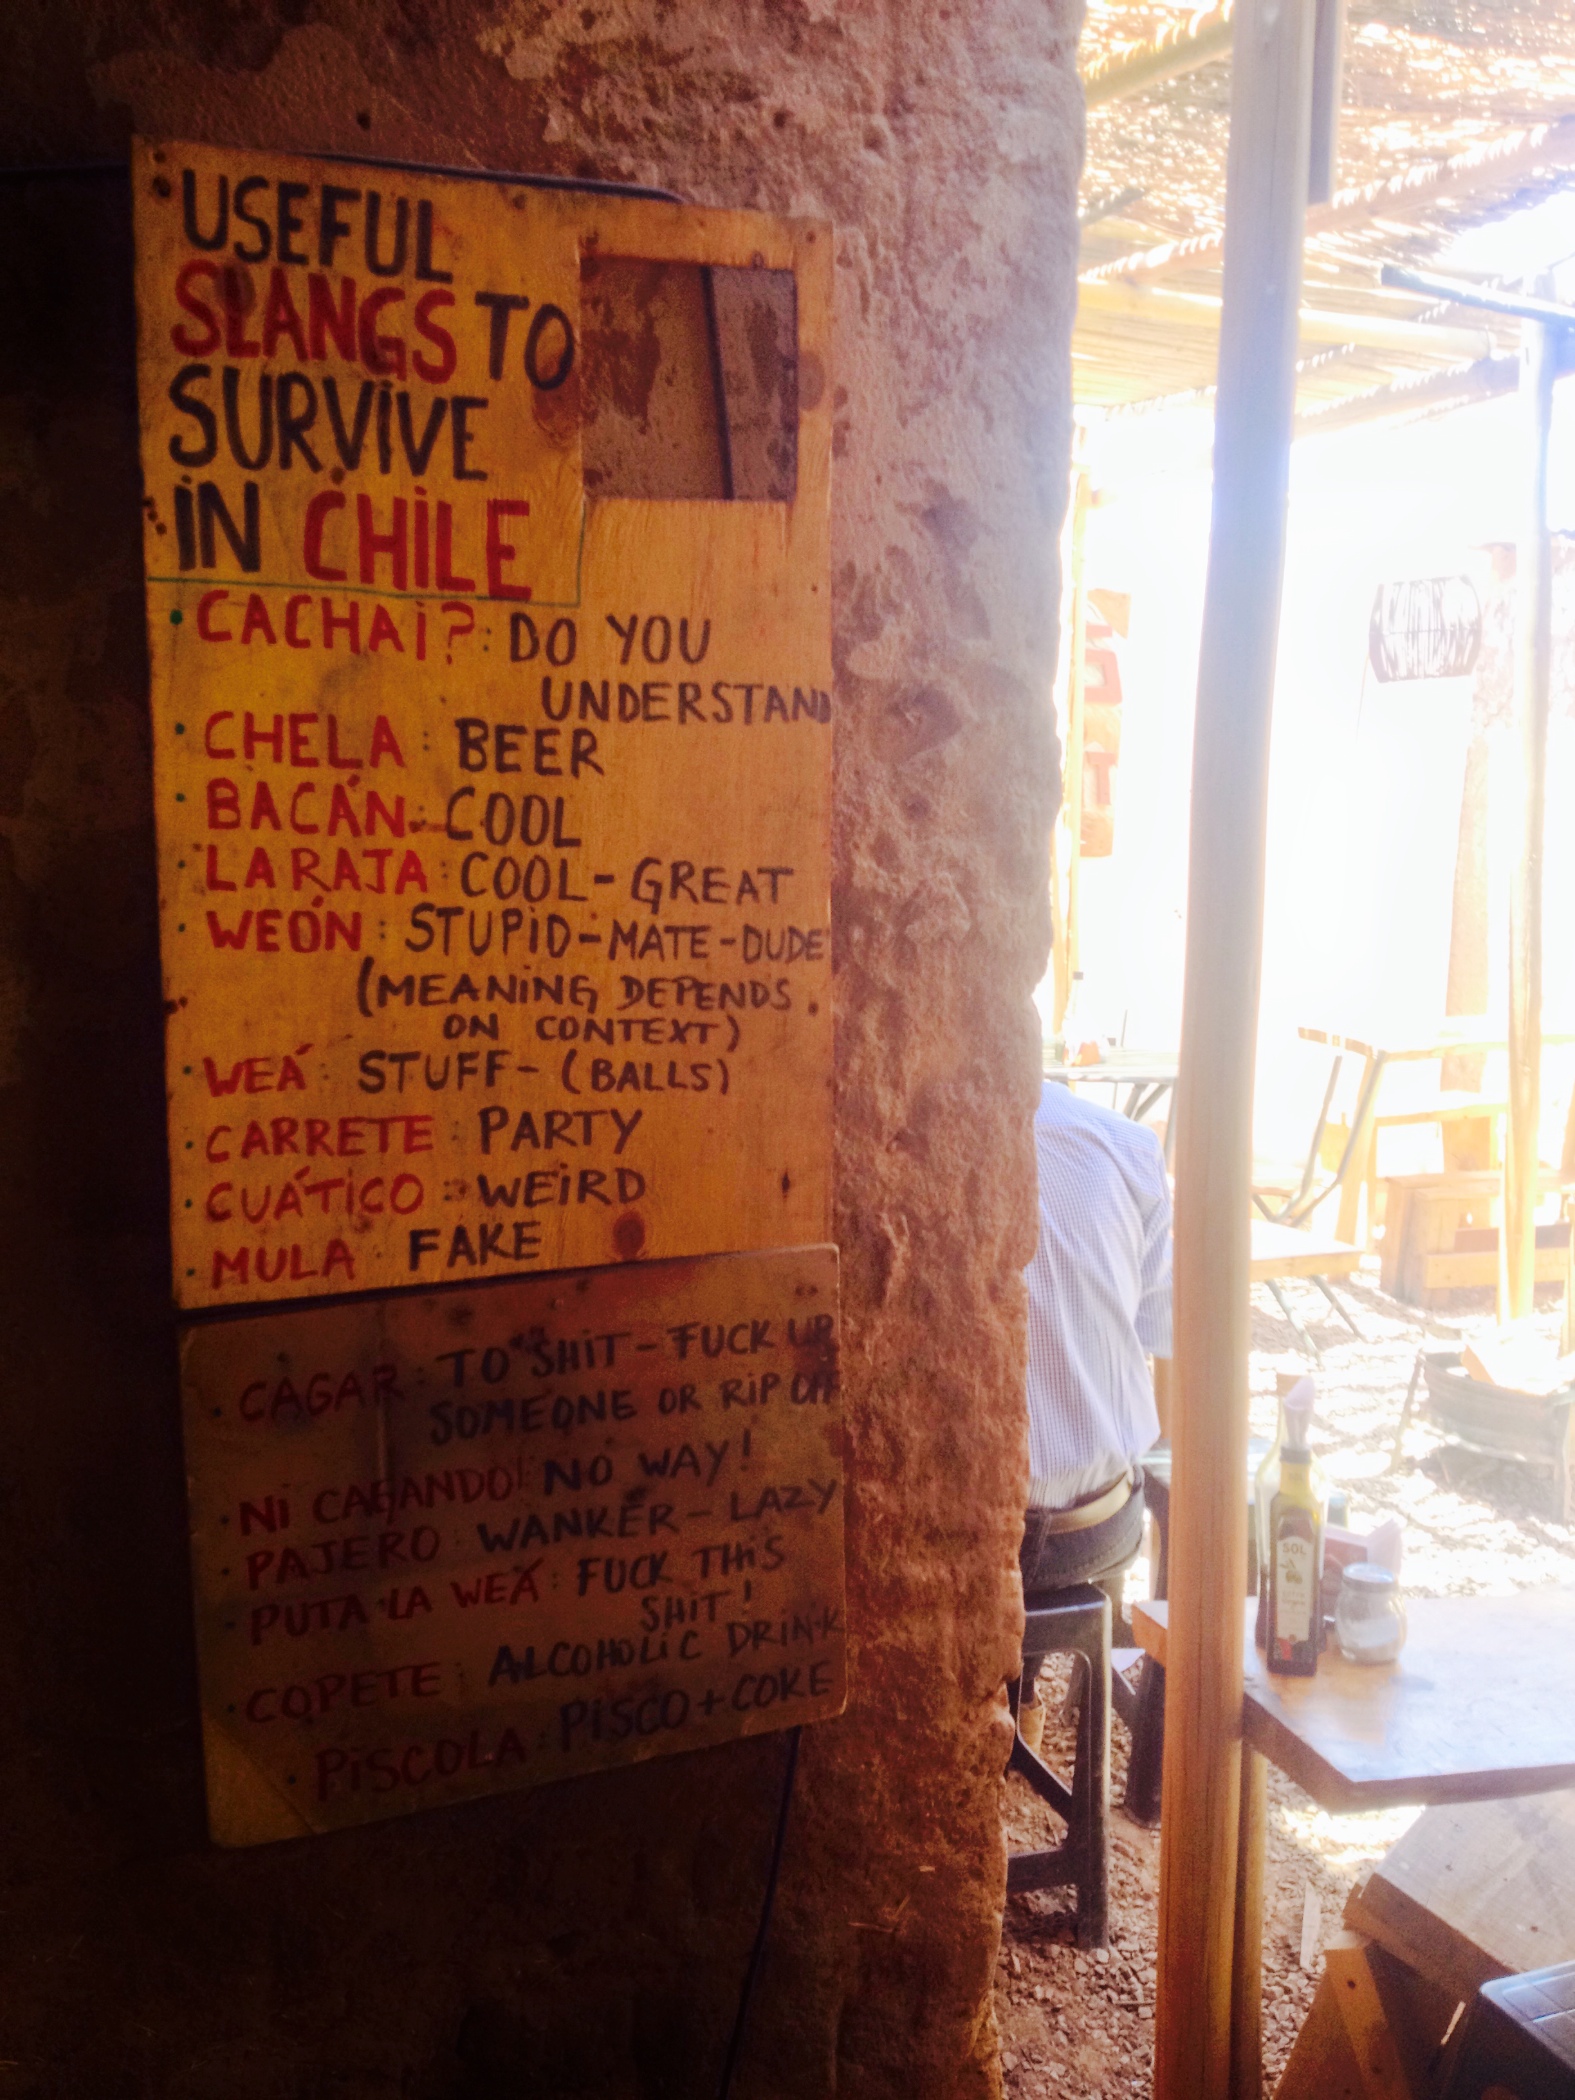 USEFUL
SLANGS TO
SURVIVE
IN CHILE
• CACHAI? : DO YOU
UNDERSTAND
• CHELA : BEER
• BACÁN : COOL
• LA RAJA : COOL - GREAT
• WEÓN : STUPID - MATE - DUDE
(MEANING DEPENDS
ON CONTEXT)
• WEÁ : STUFF - (BALLS)
• CARRETE : PARTY
• CUÁTICO : WEIRD
• MULA : FAKE
• CAGAR : TO SHIT - FUCK UP
SOMEONE OR RIP OFF
• NI CAGANDO! : NO WAY!
• PAJERO : WANKER - LAZY
• PUTA LA WEÁ : FUCK THIS
SHIT!
• COPETE : ALCOHOLIC DRINK
• PISCOLA : PISCO + COKE
SOL